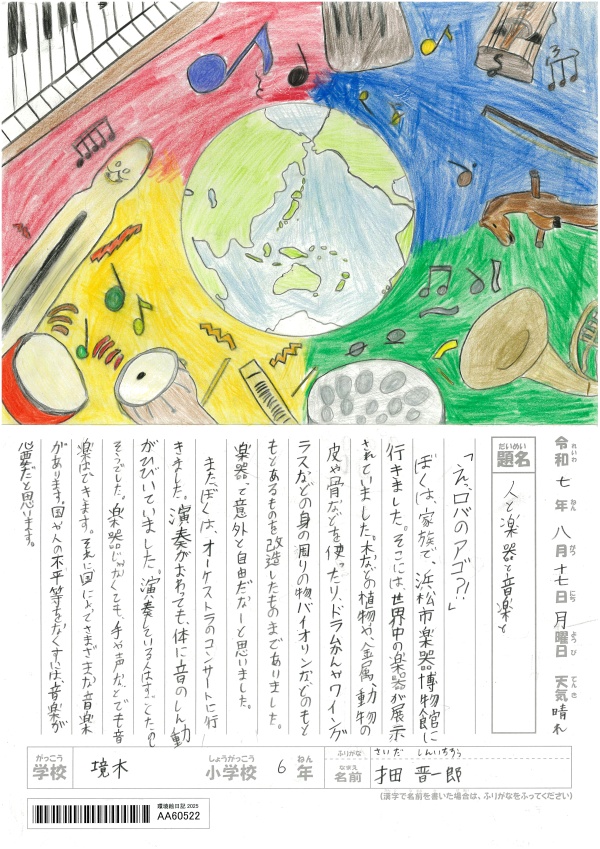 令和七年八月十七日月曜日 天気晴れ
れいわ ねん がつ にち ようび てんき
だいめい
題名 人と楽器と音楽と
「え、ロバのアゴ?!」
ぼくは、家族で、浜松市楽器博物館に
行きました。そこには、世界中の楽器が展示
されていました。木などの植物や、金属、動物の
皮や骨などを使ったり、ドラムかんやワイング
ラスなどの身の周りの物、バイオリンなどのもと
もとあるものを改造したものまでありました。
楽器って意外と自由だなーと思いました。
またぼくは、オーケストラのコンサートに行
きました。演奏がおわっても、体に音のしん動
がひびいていました。演奏している人はすごくたいへん
そうでした。楽器じゃなくても、手や声などでも音
楽はできます。それに国によってさまざまな音楽
があります。国や人の不平等をなくすには、音楽が
必要だと思います。
がっこう しょうがっこう ねん ふりがな さいだ しんいちろう
学校 境木 小学校 6年 なまえ 名前 才田 晋一郎
(漢字で名前を書いた場合は、ふりがなをふってください)
環境絵日記 2025
AA60522